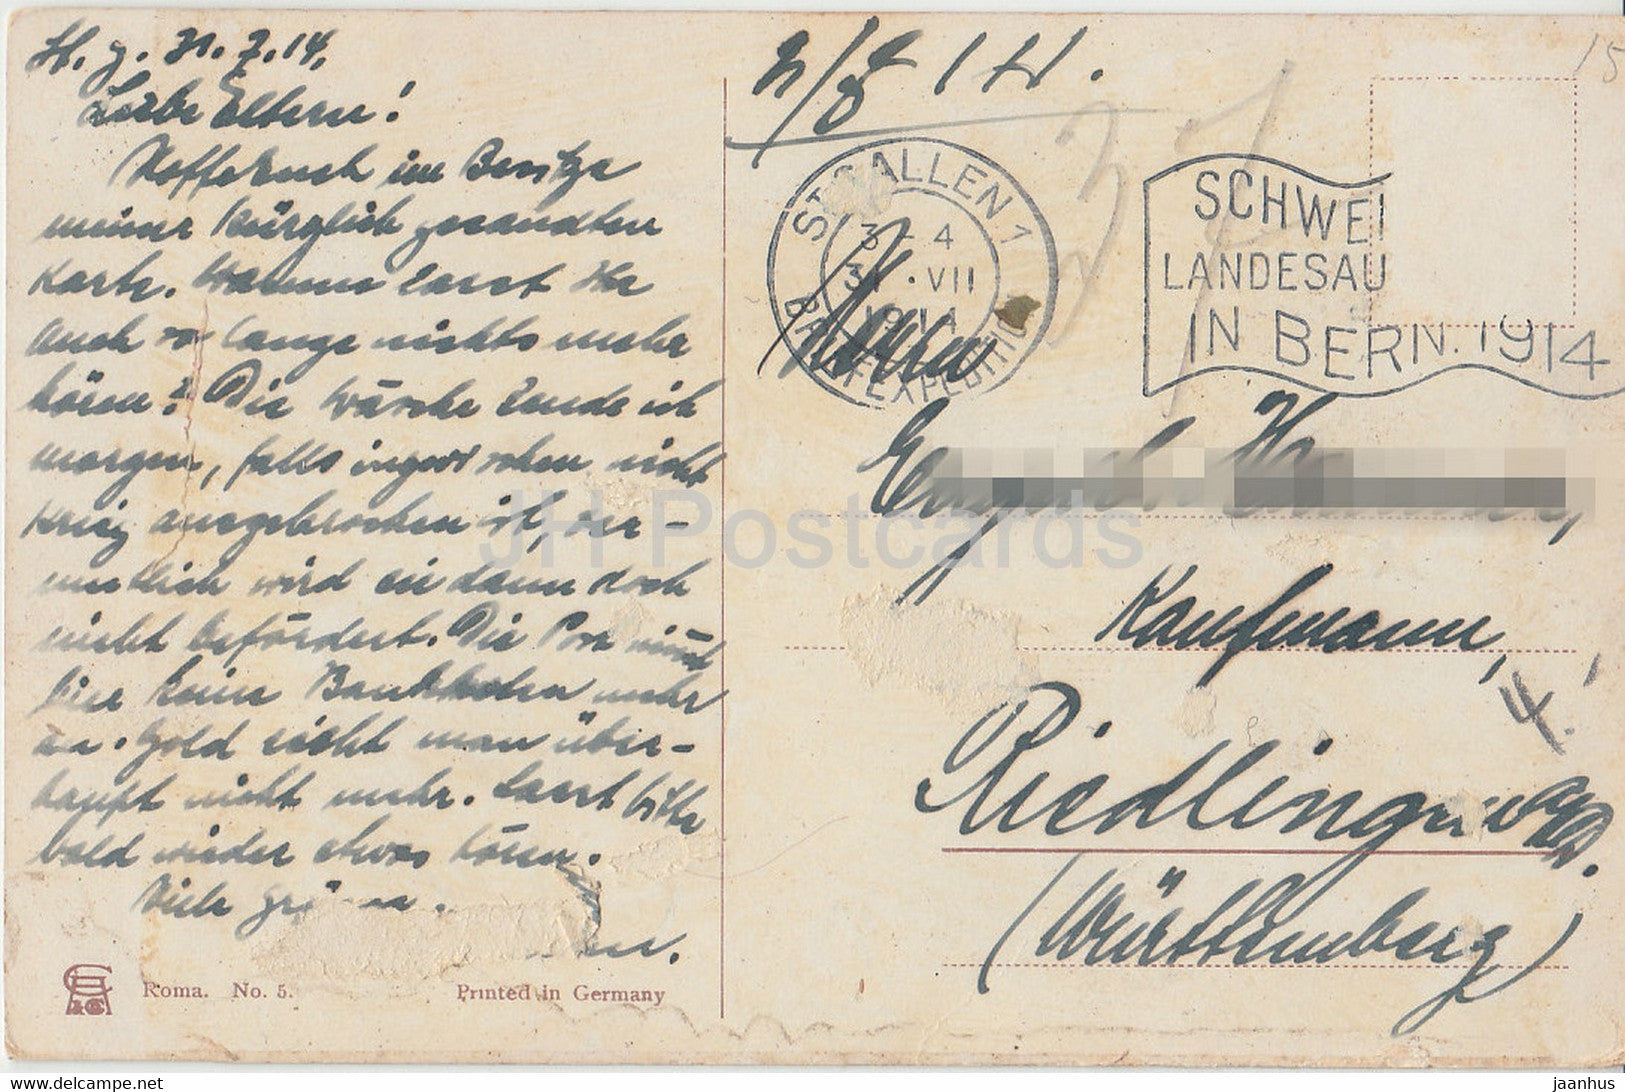 St. g. 31.7.14.
Liebe Eltern!
Hoffe Euch im Besitze
meiner kürzlich gesandten
Karte. Warum lasst Ihr
auch so lange nichts mehr
hören? Die Wäsche sende ich
morgen, falls inzwischen nicht
Krieg ausgebrochen ist, ver-
mutlich wird sie dann doch
nicht befördert. Die Post nimmt
hier keine Banknoten mehr
an. Gold sieht man über-
haupt nicht mehr. Lasst bitte
bald wieder etwas hören.
Viele
ST. GALLEN 1
3 - 4
31. VII
1914
BRIEFEXPEDITION
SCHWEI
LANDESAU
IN BERN. 1914
15
37
Herrn
Kaufmann,
4.
Riedlingen
(Württemberg)
Roma. No. 5.
Printed in Germany
JH Postcards
jaanhus